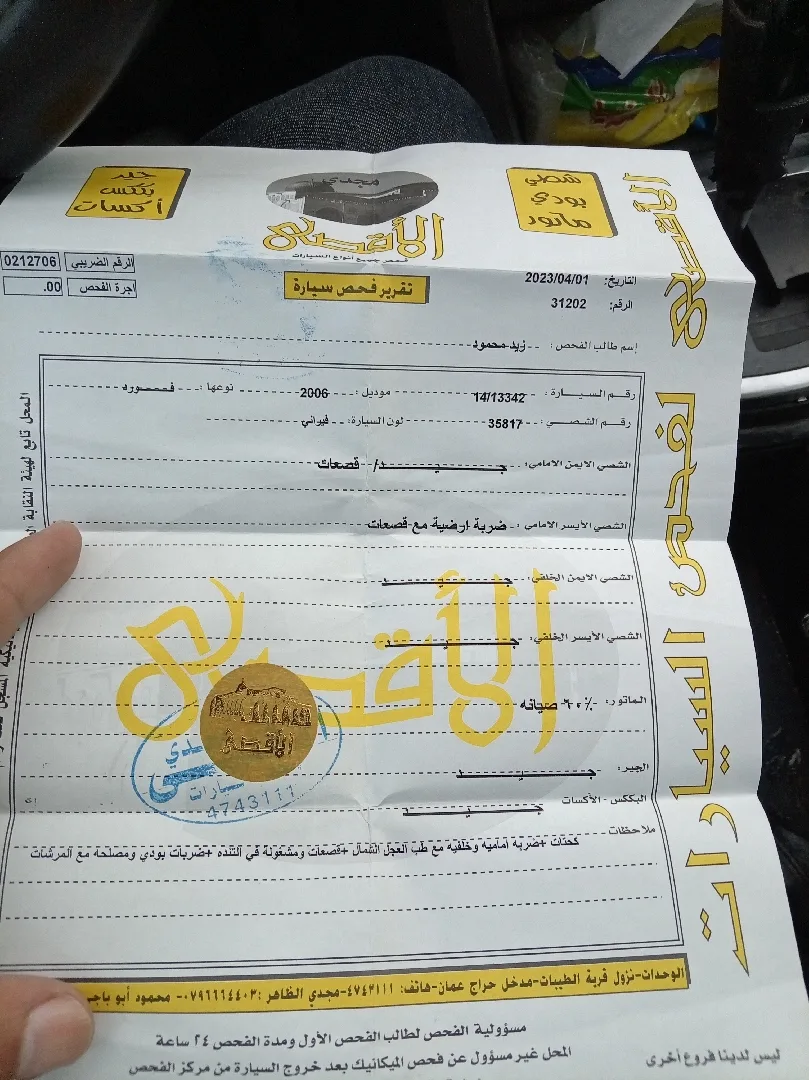 جلد
بكس
أكسات
مجدي
الأقصى
لفحص جميع انواع السيارات
شصي
بودي
ماتور
الأقصى لفحص السيارات
الرقم الضريبي 0212706
اجرة الفحص .00
تقرير فحص سيارة
التاريخ: 2023/04/01
الرقم: 31202
إسم طالب الفحص: زيد محمود
رقم السيارة: 14/13342 موديل: 2006 نوعها: فورد
رقم الشصي: 35817 لون السيارة: فيراني
الشصي الايمن الامامي: جيد/ قصعات
الشصي الأيسر الامامي: ضربة ارضية مع قصعات
الشصي الايمن الخلفي: جيد
الشصي الأيسر الخلفي: جيد
الماتور: ٦٠٪ صيانه
الجير: جيد
البككس - الأكسات جيد
ملاحظات
كحتات +ضربه امامية وخلفيه مع طب العجل الشمال +قصعات ومشغولة في التنده +ضربات بودي ومصلحه مع المرشات
الأقصى
الأقصى
4743111
المحل تابع لهيئة النقابة
الوحدات-نزول قرية الطيبات-مدخل حراج عمان-هاتف: ٤٧٤٣١١١-مجدي الظاهر :٠٧٩٦٦٦٤٤٠٣- محمود أبو
مسؤولية الفحص لطالب الفحص الأول ومدة الفحص ٢٤ ساعة
المحل غير مسؤول عن فحص الميكانيك بعد خروج السيارة من مركز الفحص
ليس لدينا فروع أخرى